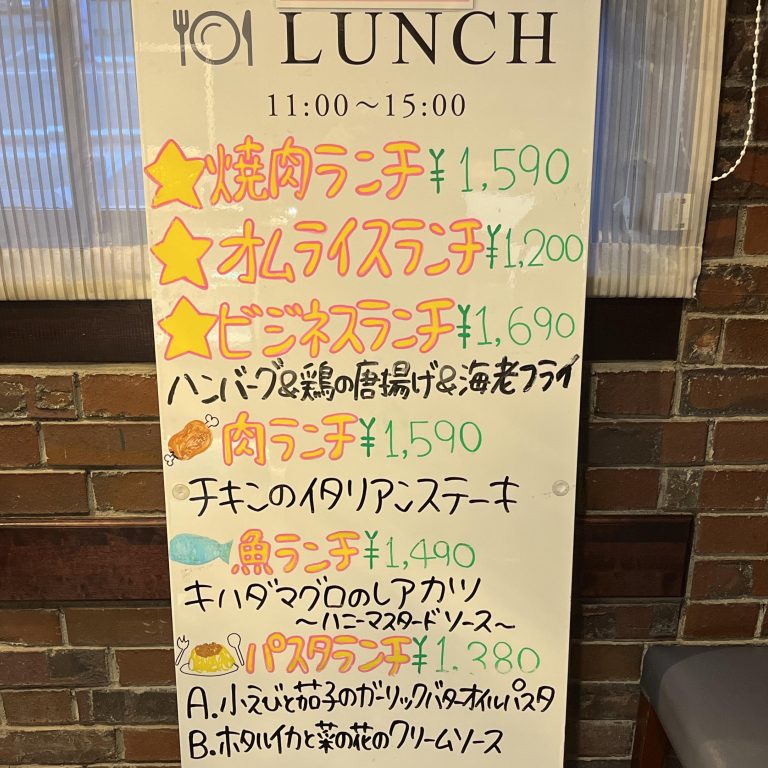 LUNCH
11:00～15:00
焼肉ランチ ¥1,590
オムライスランチ ¥1,200
ビジネスランチ ¥1,690
ハンバーグ&鶏の唐揚げ&海老フライ
肉ランチ ¥1,590
チキンのイタリアンステーキ
魚ランチ ¥1,490
キハダマグロのレアカツ
～ハニーマスタードソース～
パスタランチ ¥1,380
A.小えびと茄子のガーリックバターオイルパスタ
B.ホタルイカと菜の花のクリームソース